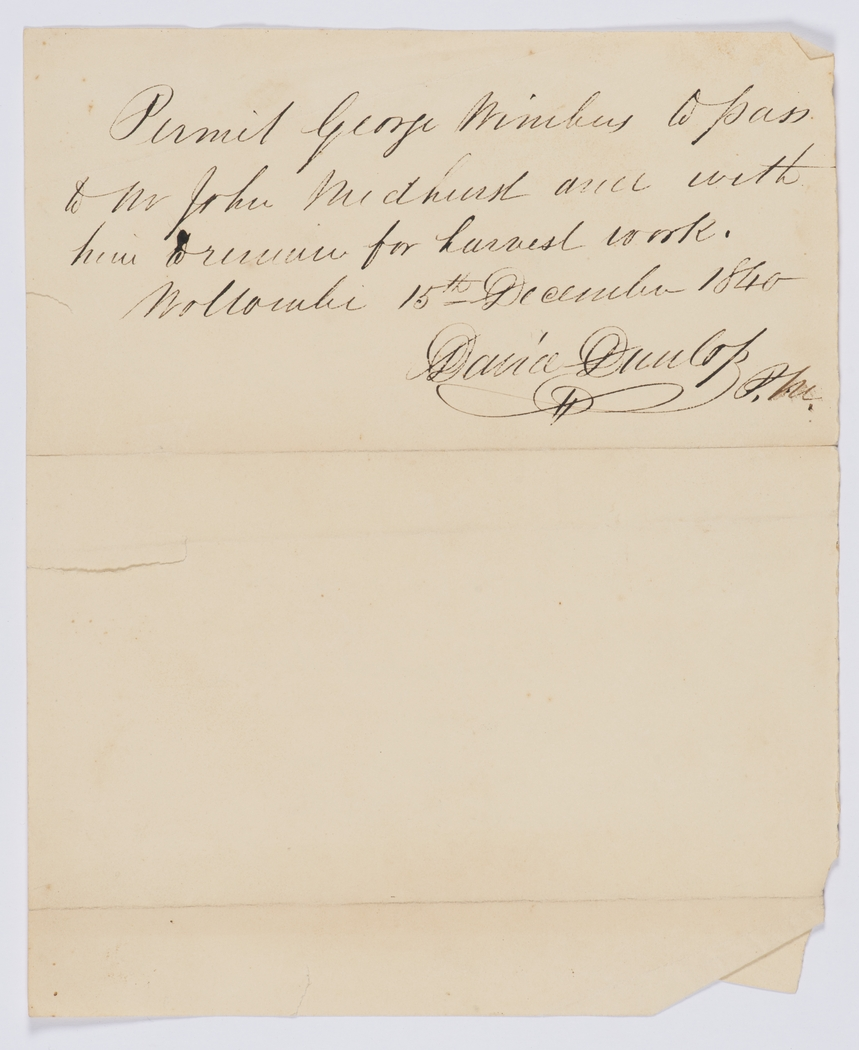 Permit George Wimbus to pass
to Mr John Medhurst and with
him to remain for harvest work.
Wollombi 15th December 1840
David Dunlop P.M.